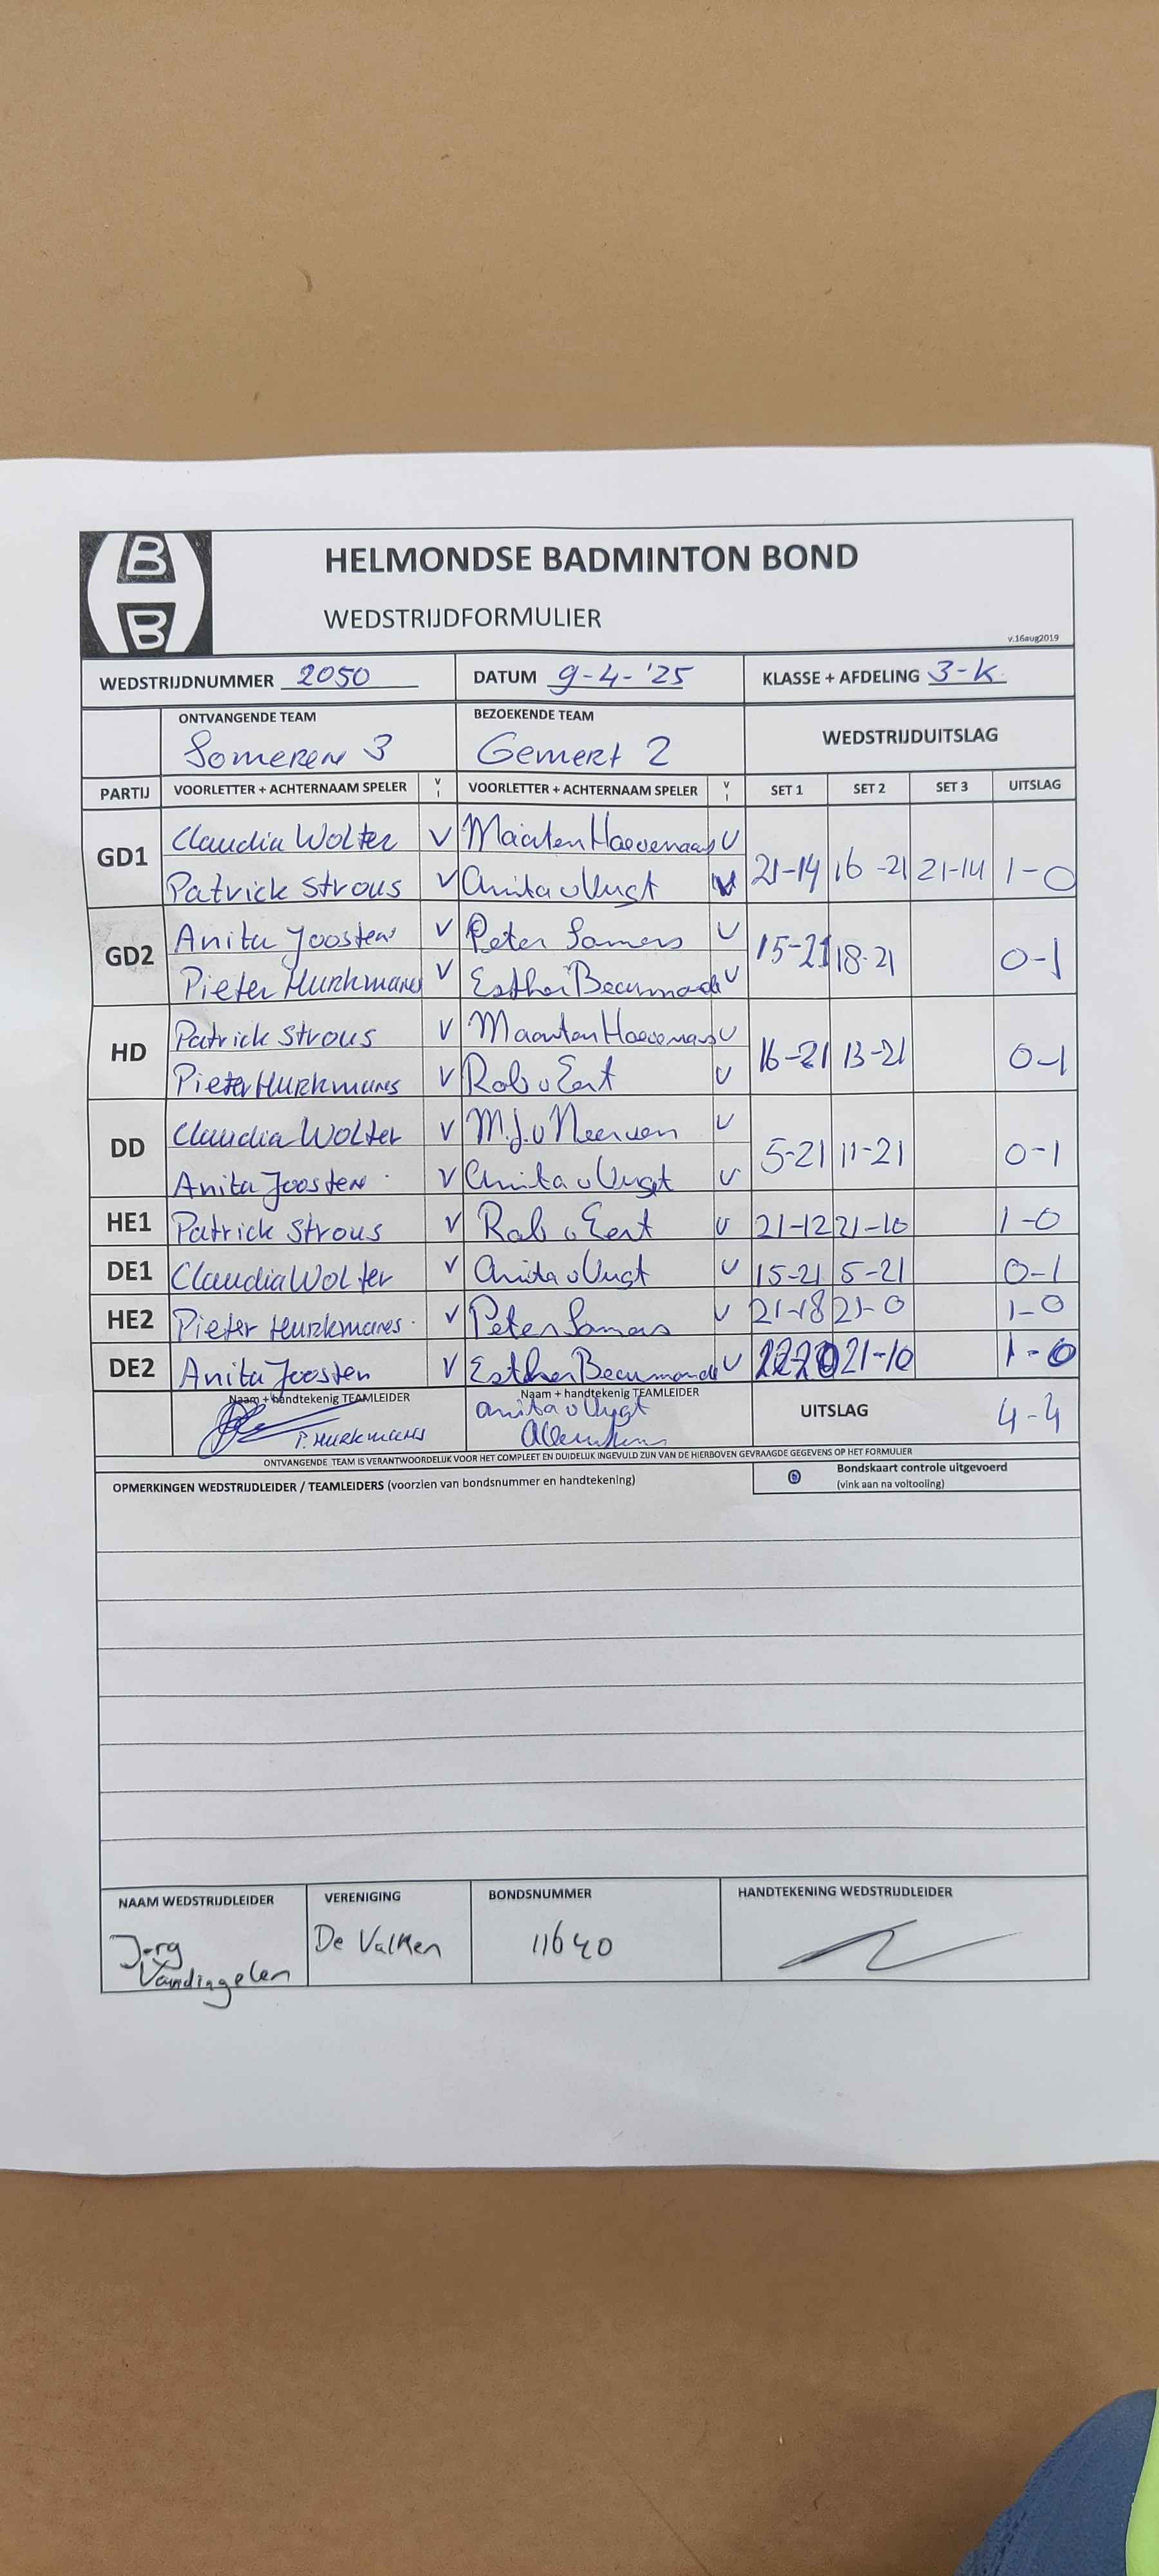 B
B
HELMONDSE BADMINTON BOND
WEDSTRIJDFORMULIER
v.16aug2019
WEDSTRIJDNUMMER 2050 DATUM 9-4-'25 KLASSE + AFDELING 3-K
ONTVANGENDE TEAM BEZOEKENDE TEAM WEDSTRIJDUITSLAG
Someren 3 Gemert 2
PARTIJ VOORLETTER + ACHTERNAAM SPELER V I VOORLETTER + ACHTERNAAM SPELER V I SET 1 SET 2 SET 3 UITSLAG
GD1 Claudia Wolter V Maarten Hoevenaars V
Patrick Strous V Anita v Vugt V 21-14 16-21 21-14 1-0
GD2 Anita Joosten V Peter Somers V 15-21 18-21 0-1
Pieter Hurkmans V Esther V
HD Patrick Strous V Maarten Hoevenaars V 16-21 13-21 0-1
Pieter Hurkmans V Rob v Eert V
DD Claudia Wolter V M.J. v Neerven V 5-21 11-21 0-1
Anita Joosten V Anita v Vugt V
HE1 Patrick Strous V Rob v Eert V 21-12 21-10 1-0
DE1 Claudia Wolter V Anita v Vugt V 15-21 5-21 0-1
HE2 Pieter Hurkmans V Peter Somers V 21-18 21-0 1-0
DE2 Anita Joosten V Esther V 22-20 21-10 1-0
Naam + handtekenig TEAMLEIDER Naam + handtekenig TEAMLEIDER UITSLAG 4-4
P. Hurkmans Anita v Vugt
ONTVANGENDE TEAM IS VERANTWOORDELIJK VOOR HET COMPLEET EN DUIDELIJK INGEVULD ZIJN VAN DE HIERBOVEN GEVRAAGDE GEGEVENS OP HET FORMULIER
OPMERKINGEN WEDSTRIJDLEIDER / TEAMLEIDERS (voorzien van bondsnummer en handtekening) Bondskaart controle uitgevoerd
(vink aan na voltooling)
NAAM WEDSTRIJDLEIDER VERENIGING BONDSNUMMER HANDTEKENING WEDSTRIJDLEIDER
Jorg De Valken 11640
Vandingelen